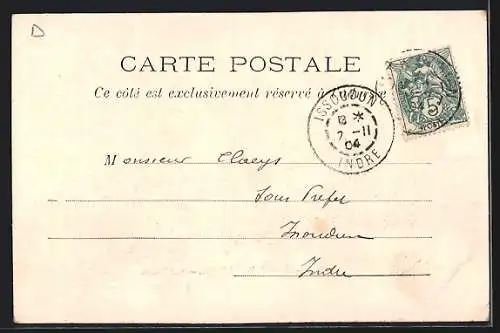 D
CARTE POSTALE
Ce côté est exclusivement réservé à l'adresse
ISSOUDUN
7 -11
04
INDRE
5
Monsieur Claeys
Sous Préfet
Issoudun
Indre